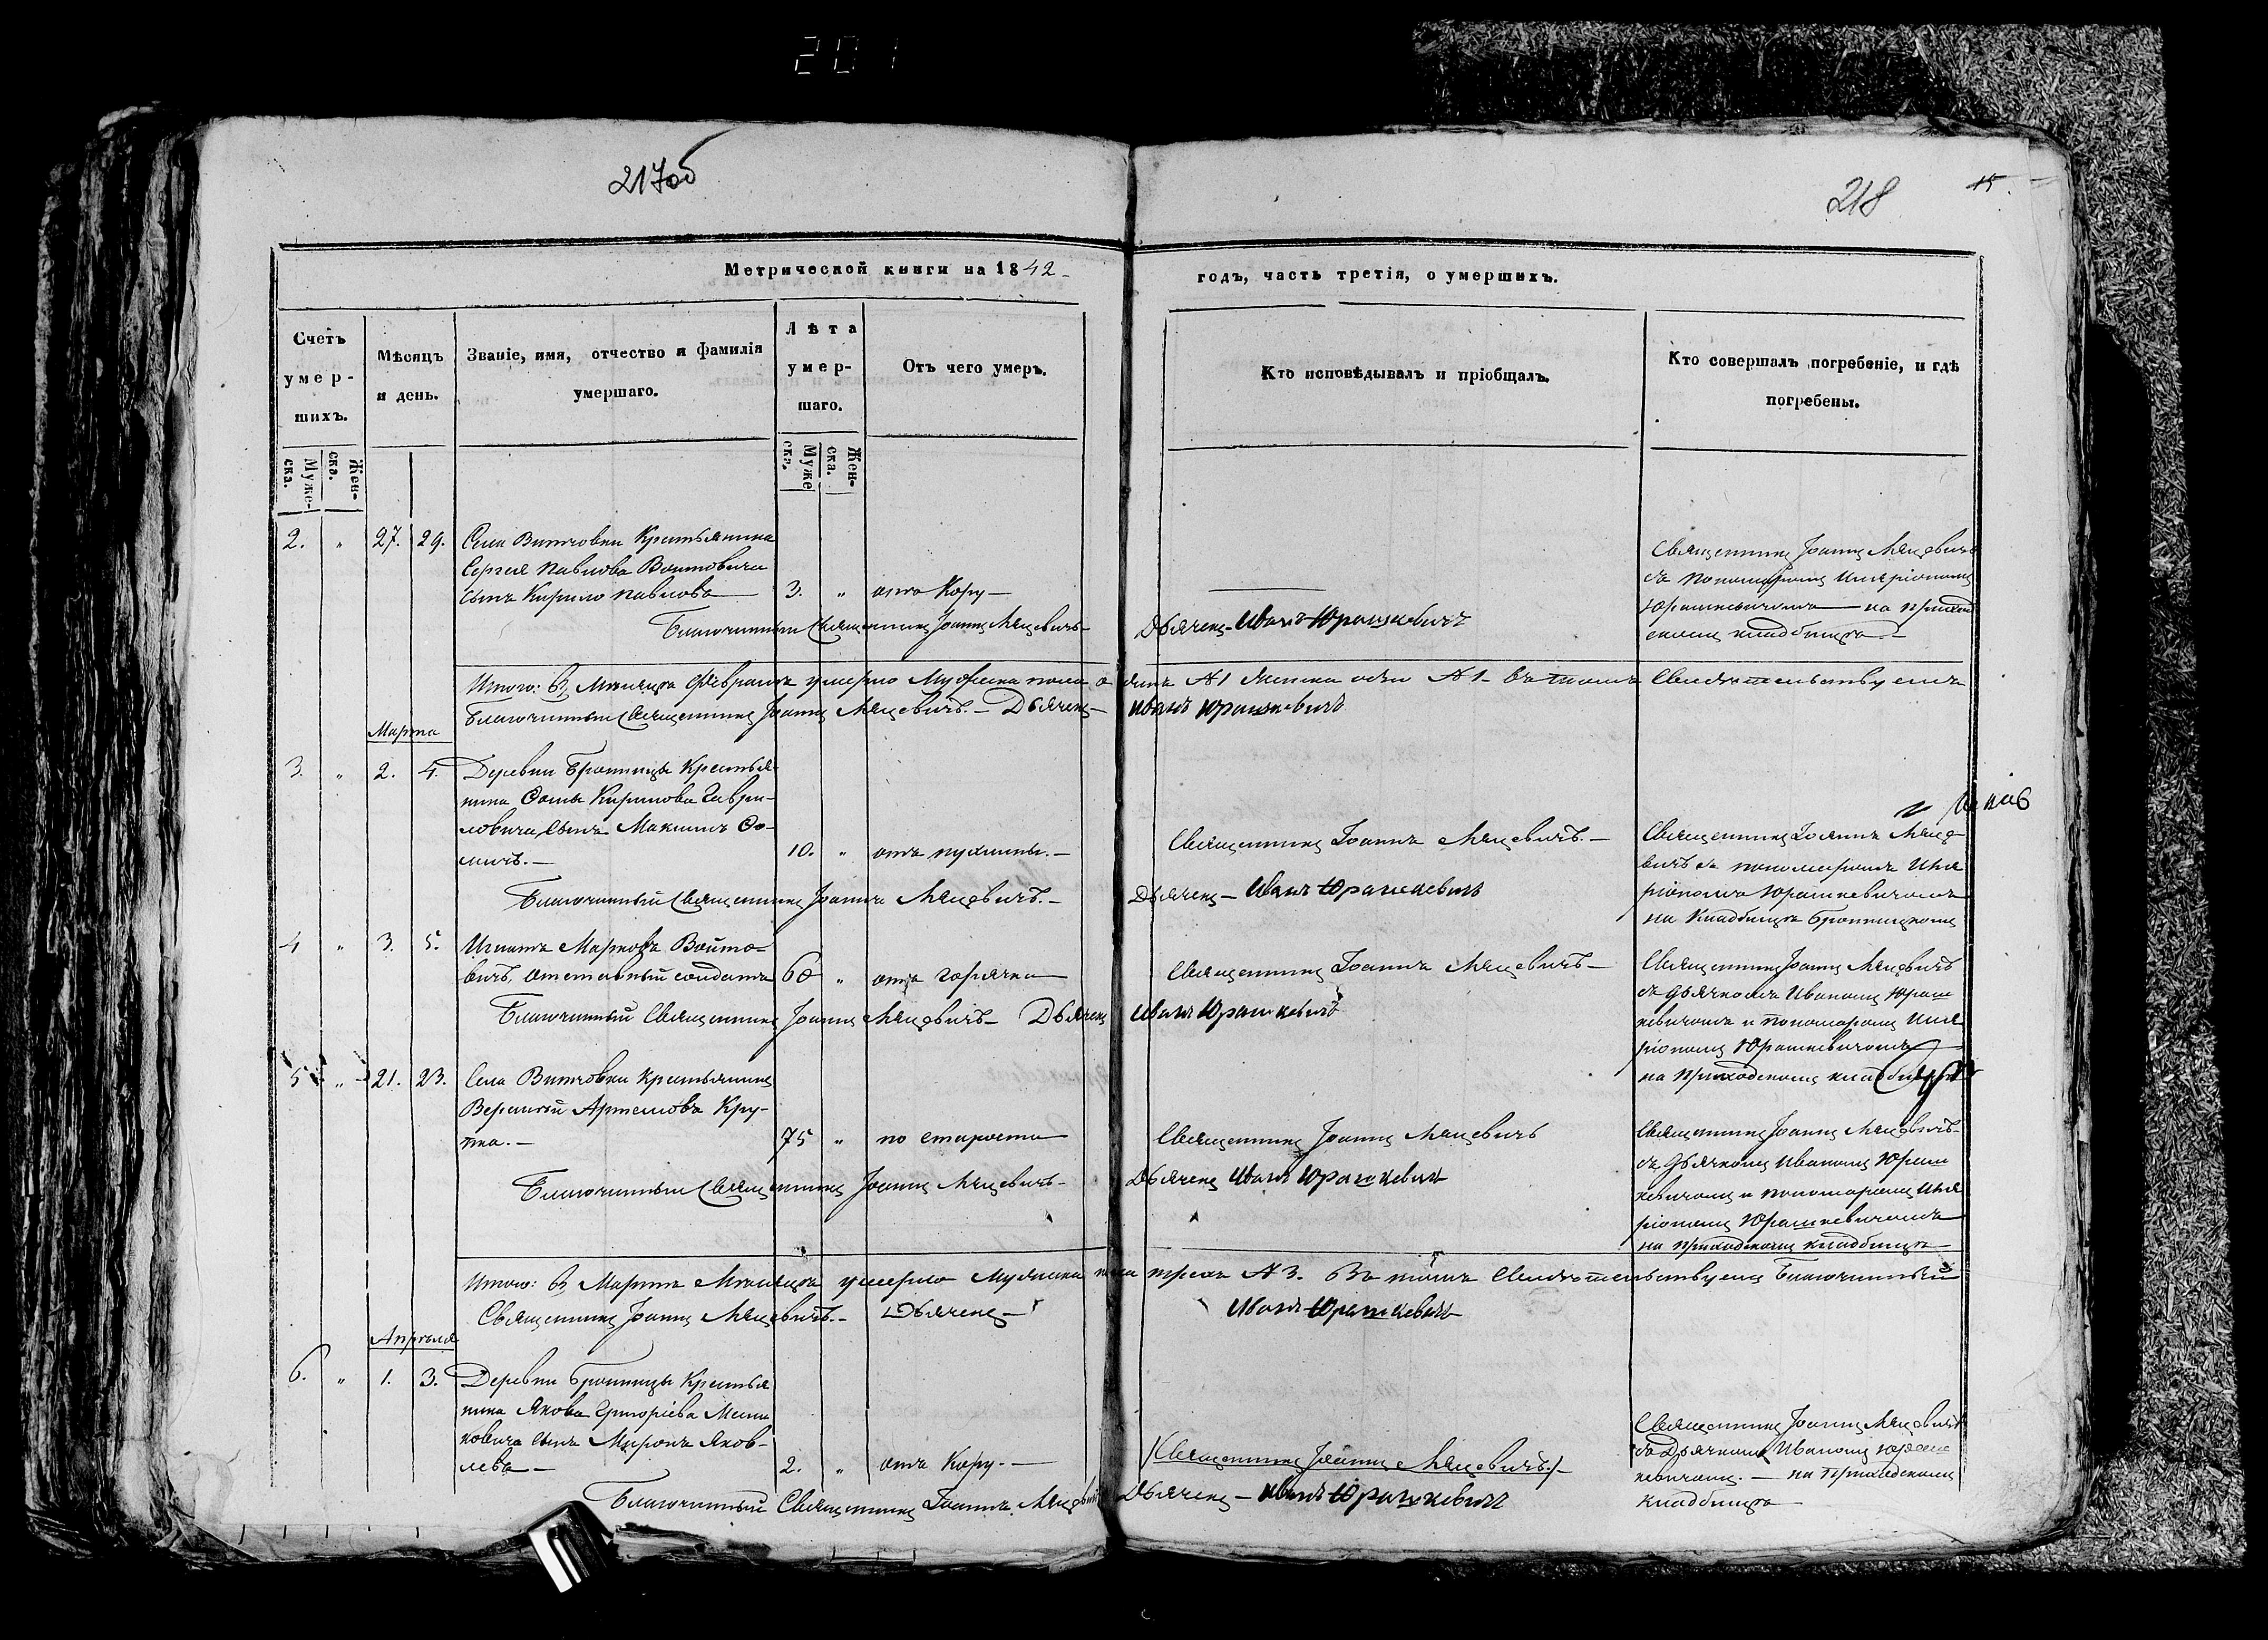 201
217об
218
15.
Метрической книги на 1842
годъ, часть третія, о умершихъ.
Счетъ умер-шихъ.
Мѣсяцъ и день.
Званіе, имя, отчество и фамилія умершаго.
Лѣта умер-шаго.
Отъ чего умеръ.
Кто исповѣдывалъ и пріобщалъ.
Кто совершалъ погребеніе, и гдѣ погребены.
Муже-ска.
Жен-ска.
Муже ска.
Жен-ска.
2. " 27. 29. Села Витчовки Крестьянина
Сергея Павлова Войтовича
сынъ Кирило Павловъ 3. " отъ Кору —
Священникъ Іоаннъ Мацевичъ
съ пономаремъ Иларіономъ
Юрашкевичомъ — на приход
скомъ кладбищѣ. —
Благочинный Священникъ Іоаннъ Мацевичъ — Дьячекъ — Иванъ Юрашкевичъ
Итого: Въ Мѣсяцѣ Февралѣ умерло Мужеска пола одинъ №1 Женска одна №1 — въ томъ Свидѣтельствуемъ
Благочинный Священникъ Іоаннъ Мацевичъ. — Дьячекъ — Иванъ Юрашкевичъ
Марта
3. " 2. 4. Деревни Бротницы Крестья-
нина Фомы Кирилова Гаври-
ловича, сынъ Максимъ Фо-
мичъ. — 10. " отъ пухлины. —
Священникъ Іоаннъ Мацевичъ. —
Священникъ Іоаннъ Маце-
вичъ съ пономаремъ Ила
ріономъ Юрашкевичомъ
на Кладбищѣ Бротницкомъ
Благочинный Священникъ Іоаннъ Мацевичъ. — Дьячекъ — Иванъ Юрашкевичъ
4 " 3. 5. Игнатъ Марковъ Войто-
вичъ, отставный солдатъ 60 " отъ горячки
Священникъ Іоаннъ Мацевичъ —
Священникъ Іоаннъ Мацевичъ
съ дьячкомъ Иваномъ Юраш
кевичомъ и пономаремъ Ила
ріономъ Юрашкевичомъ
на приходскомъ кладбищѣ
Благочинный Священникъ Іоаннъ Мацевичъ — Дьячекъ Иванъ Юрашкевичъ
5 " 21. 23. Села Витчовки Крестьянинъ
Артемовъ Кру-
75 " по старости
Священникъ Іоаннъ Мацевичъ
Священникъ Іоаннъ Мацевичъ —
съ дьячкомъ Иваномъ Юраш
кевичомъ и пономаремъ Ила
ріономъ Юрашкевичомъ
на приходскомъ кладбищѣ
Благочинный Священникъ Іоаннъ Мацевичъ — Дьячекъ Иванъ Юрашкевичъ
Итого: Въ Мартѣ Мѣсяцѣ умерло Мужеска пола трехъ №3. Въ томъ Свидѣтельствуемъ Благочинный
Священникъ Іоаннъ Мацевичъ. — Дьячекъ — Иванъ Юрашкевичъ
Апрѣля
6. " 1. 3. Деревни Бротницы Крестья
нина Якова Григоріева
сынъ Миронъ Яков-
левъ — 2. " отъ Кору. —
/Священникъ Іоаннъ Мацевичъ./ —
Священникъ Іоаннъ Мацевичъ
съ Дьячкомъ Иваномъ Юраш
кевичомъ. — на приходскомъ
кладбищѣ —
Благочинный Священникъ Іоаннъ Мацевичъ Дьячекъ — Иванъ Юрашкевичъ